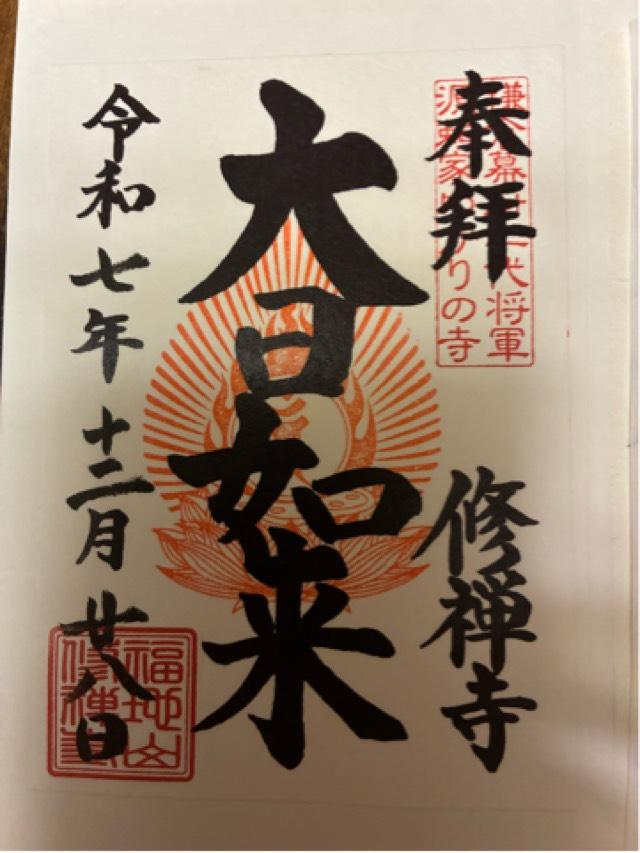 奉拝
鎌倉幕府二代将軍
源頼家ゆかりの寺
修禅寺
大日如来
令和七年十二月廿八日
福地山
修禅寺